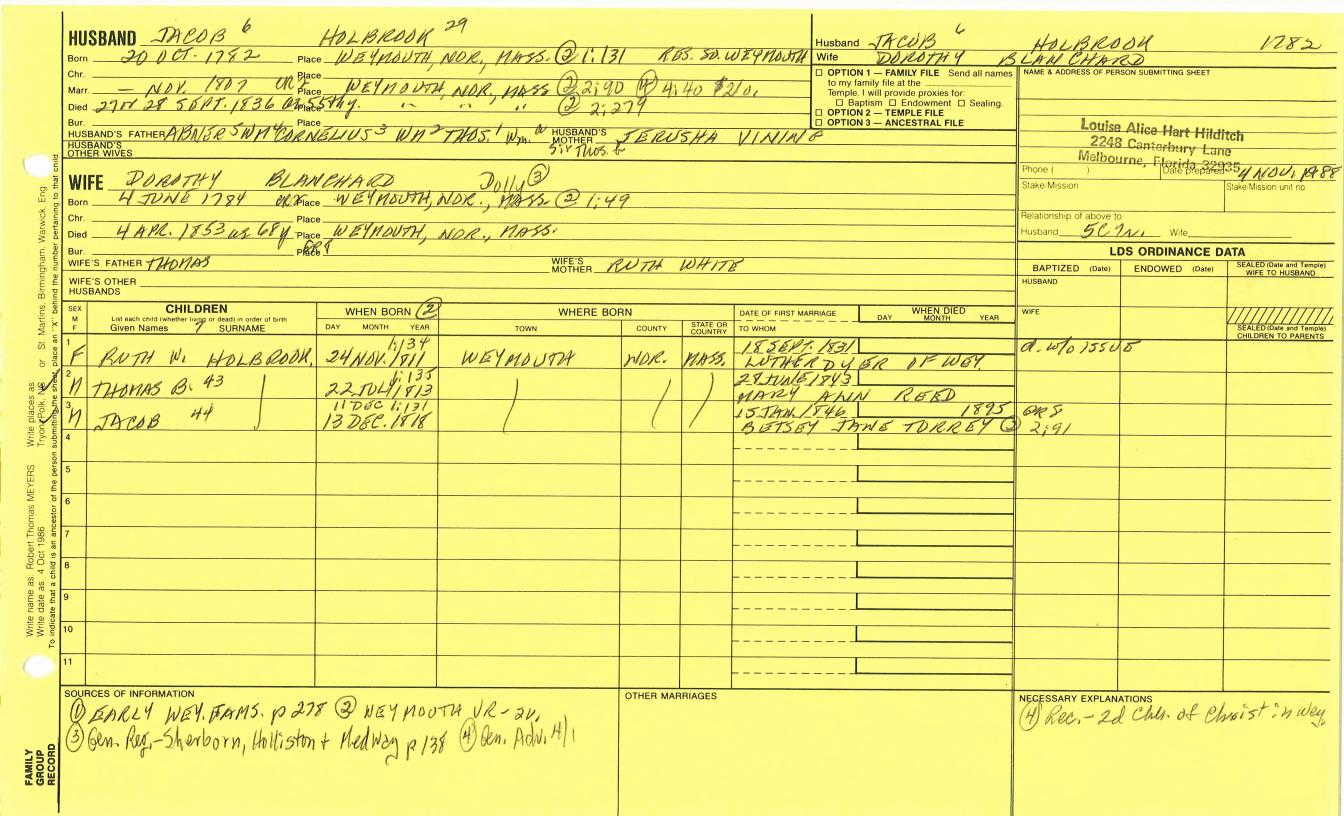 HUSBAND JACOB 6 HOLBROOK 29
Born 20 OCT. 1782 Place WEYMOUTH, NOR., MASS. ② 1:131 RES. SO. WEYMOUTH
Chr. Place
Marr. — NOV. 1807 Place WEYMOUTH, NOR, MASS ② 2:90 ④ 4:40
Died 27 or 28 SEPT. 1836 Place " " " ② 2:279
Bur.
HUSBAND'S FATHER ABNER 5 WM 4 CORNELIUS 3 WM 2 THOS. 1 Wm. HUSBAND'S MOTHER JERUSHA VINING
HUSBAND'S OTHER WIVES
Husband JACOB 6 HOLBROOK 1782
Wife DOROTHY BLANCHARD
☐ OPTION 1 — FAMILY FILE Send all names
to my family file at the
Temple. I will provide proxies for:
☐ Baptism ☐ Endowment ☐ Sealing.
☐ OPTION 2 — TEMPLE FILE
☐ OPTION 3 — ANCESTRAL FILE
NAME & ADDRESS OF PERSON SUBMITTING SHEET
Louise Alice Hart Hilditch
2248 Canterbury Lane
Melbourne, Florida 32935
Phone ( ) Date prepared 4 NOV. 1988
Stake/Mission Stake/Mission unit no
Relationship of above to
Husband 5C7R. Wife
WIFE DOROTHY BLANCHARD Dolly ③
Born 4 JUNE 1784 Place WEYMOUTH, NOR., MASS ② 1:49
Chr. Place
Died 4 APR. 1853 ae 68y Place WEYMOUTH, NOR., MASS.
Bur. Place
WIFE'S FATHER THOMAS WIFE'S MOTHER RUTH WHITE
WIFE'S OTHER HUSBANDS
LDS ORDINANCE DATA
BAPTIZED (Date) ENDOWED (Date) SEALED (Date and Temple) WIFE TO HUSBAND
HUSBAND
WIFE
SEALED (Date and Temple) CHILDREN TO PARENTS
SEX M F
CHILDREN
List each child (whether living or dead) in order of birth
Given Names 7 SURNAME
WHEN BORN ②
DAY MONTH YEAR
WHERE BORN
TOWN COUNTY STATE OR COUNTRY
DATE OF FIRST MARRIAGE
TO WHOM
WHEN DIED
DAY MONTH YEAR
1 F RUTH W. HOLBROOK 1:134 24 NOV. 1811 WEYMOUTH NOR. MASS. 18 SEPT. 1831 d. w/o ISSUE
LUTHER DYER OF WEY.
2 M THOMAS B. 43 1:135 22 JULY 1813 27 JUNE 1843
MARY ANN REED
3 M JACOB 44 11 DEC 1:131 15 JAN. 1846 1895
13 DEC. 1818 BETSEY JANE TORREY ② 2:91
4
5
6
7
8
9
10
11
SOURCES OF INFORMATION
① EARLY WEY. FAMS. p 278 ② WEYMOUTH VR - 2v.
③ Gen. Reg. - Sherborn, Holliston + Medway p 138 ④ Gen. Adv. 4/1
OTHER MARRIAGES
NECESSARY EXPLANATIONS
④ Rec. - 2d Chh. of Christ in Wey.
Write name as Robert Thomas MEYERS Write places as Tryon, Polk, NC or St Martins, Birmingham, Warwick, Eng
Write date as 4 Oct 1986
To indicate that a child is an ancestor of the person submitting the sheet, place an "X" behind the number pertaining to that child
FAMILY GROUP RECORD